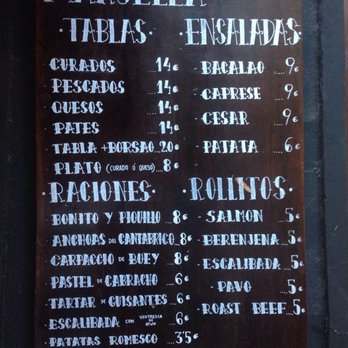 MARSELLA
·TABLAS·
·CURADOS ....14€
·PESCADOS ....14€
·QUESOS ....14€
·PATES ....14€
·TABLA +BORSAO..20€
·PLATO (CURADO ó QUESO)..8€
·ENSALADAS·
·BACALAO ....9€
·CAPRESE ....9€
·CESAR ....9€
·PATATA ....6€
·RACIONES·
·BONITO Y PIQUILLO..8€
·ANCHOAS DEL CANTABRICO..8€
·CARPACCIO DE BUEY..8€
·PASTEL DE CABRACHO..6€
·TARTAR DE GUISANTES..6€
·ESCALIBADA CON VENTRESCA DE ATUN..6€
·PATATAS ROMESCO..3'5€
·ROLLITOS·
·SALMON ...5€
·BERENJENA..5€
·ESCALIBADA...5€
·PAVO ....5€
·ROAST BEEF..5€